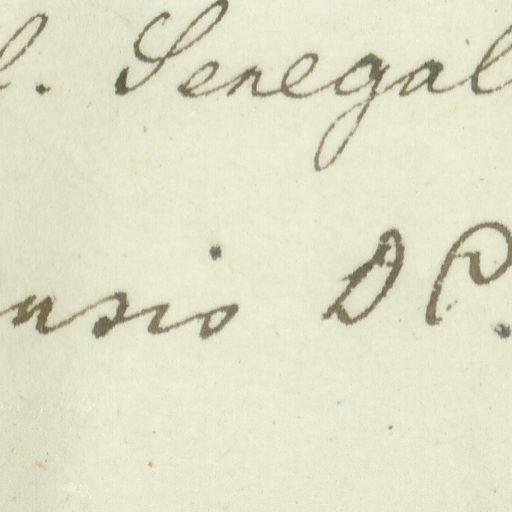 l. Senegal
nsio DC.